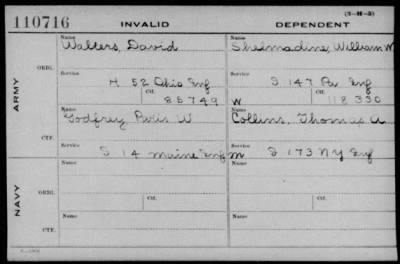 (3-H-3)
110716 INVALID DEPENDENT
Name Name
Walters, David Shelmadine, William M
ORIG.
Service Service
H 52 Ohio Inf S 147 Pa Inf
Ctf. Ctf.
85749 W 118330
ARMY
Name Name
Godfrey Paris W Collins, Thomas A
CTF.
Service Service
S 14 Maine Inf M S 173 NY Inf
Name Name
ORIG.
Ctf. Ctf.
NAVY
Name Name
CTF.